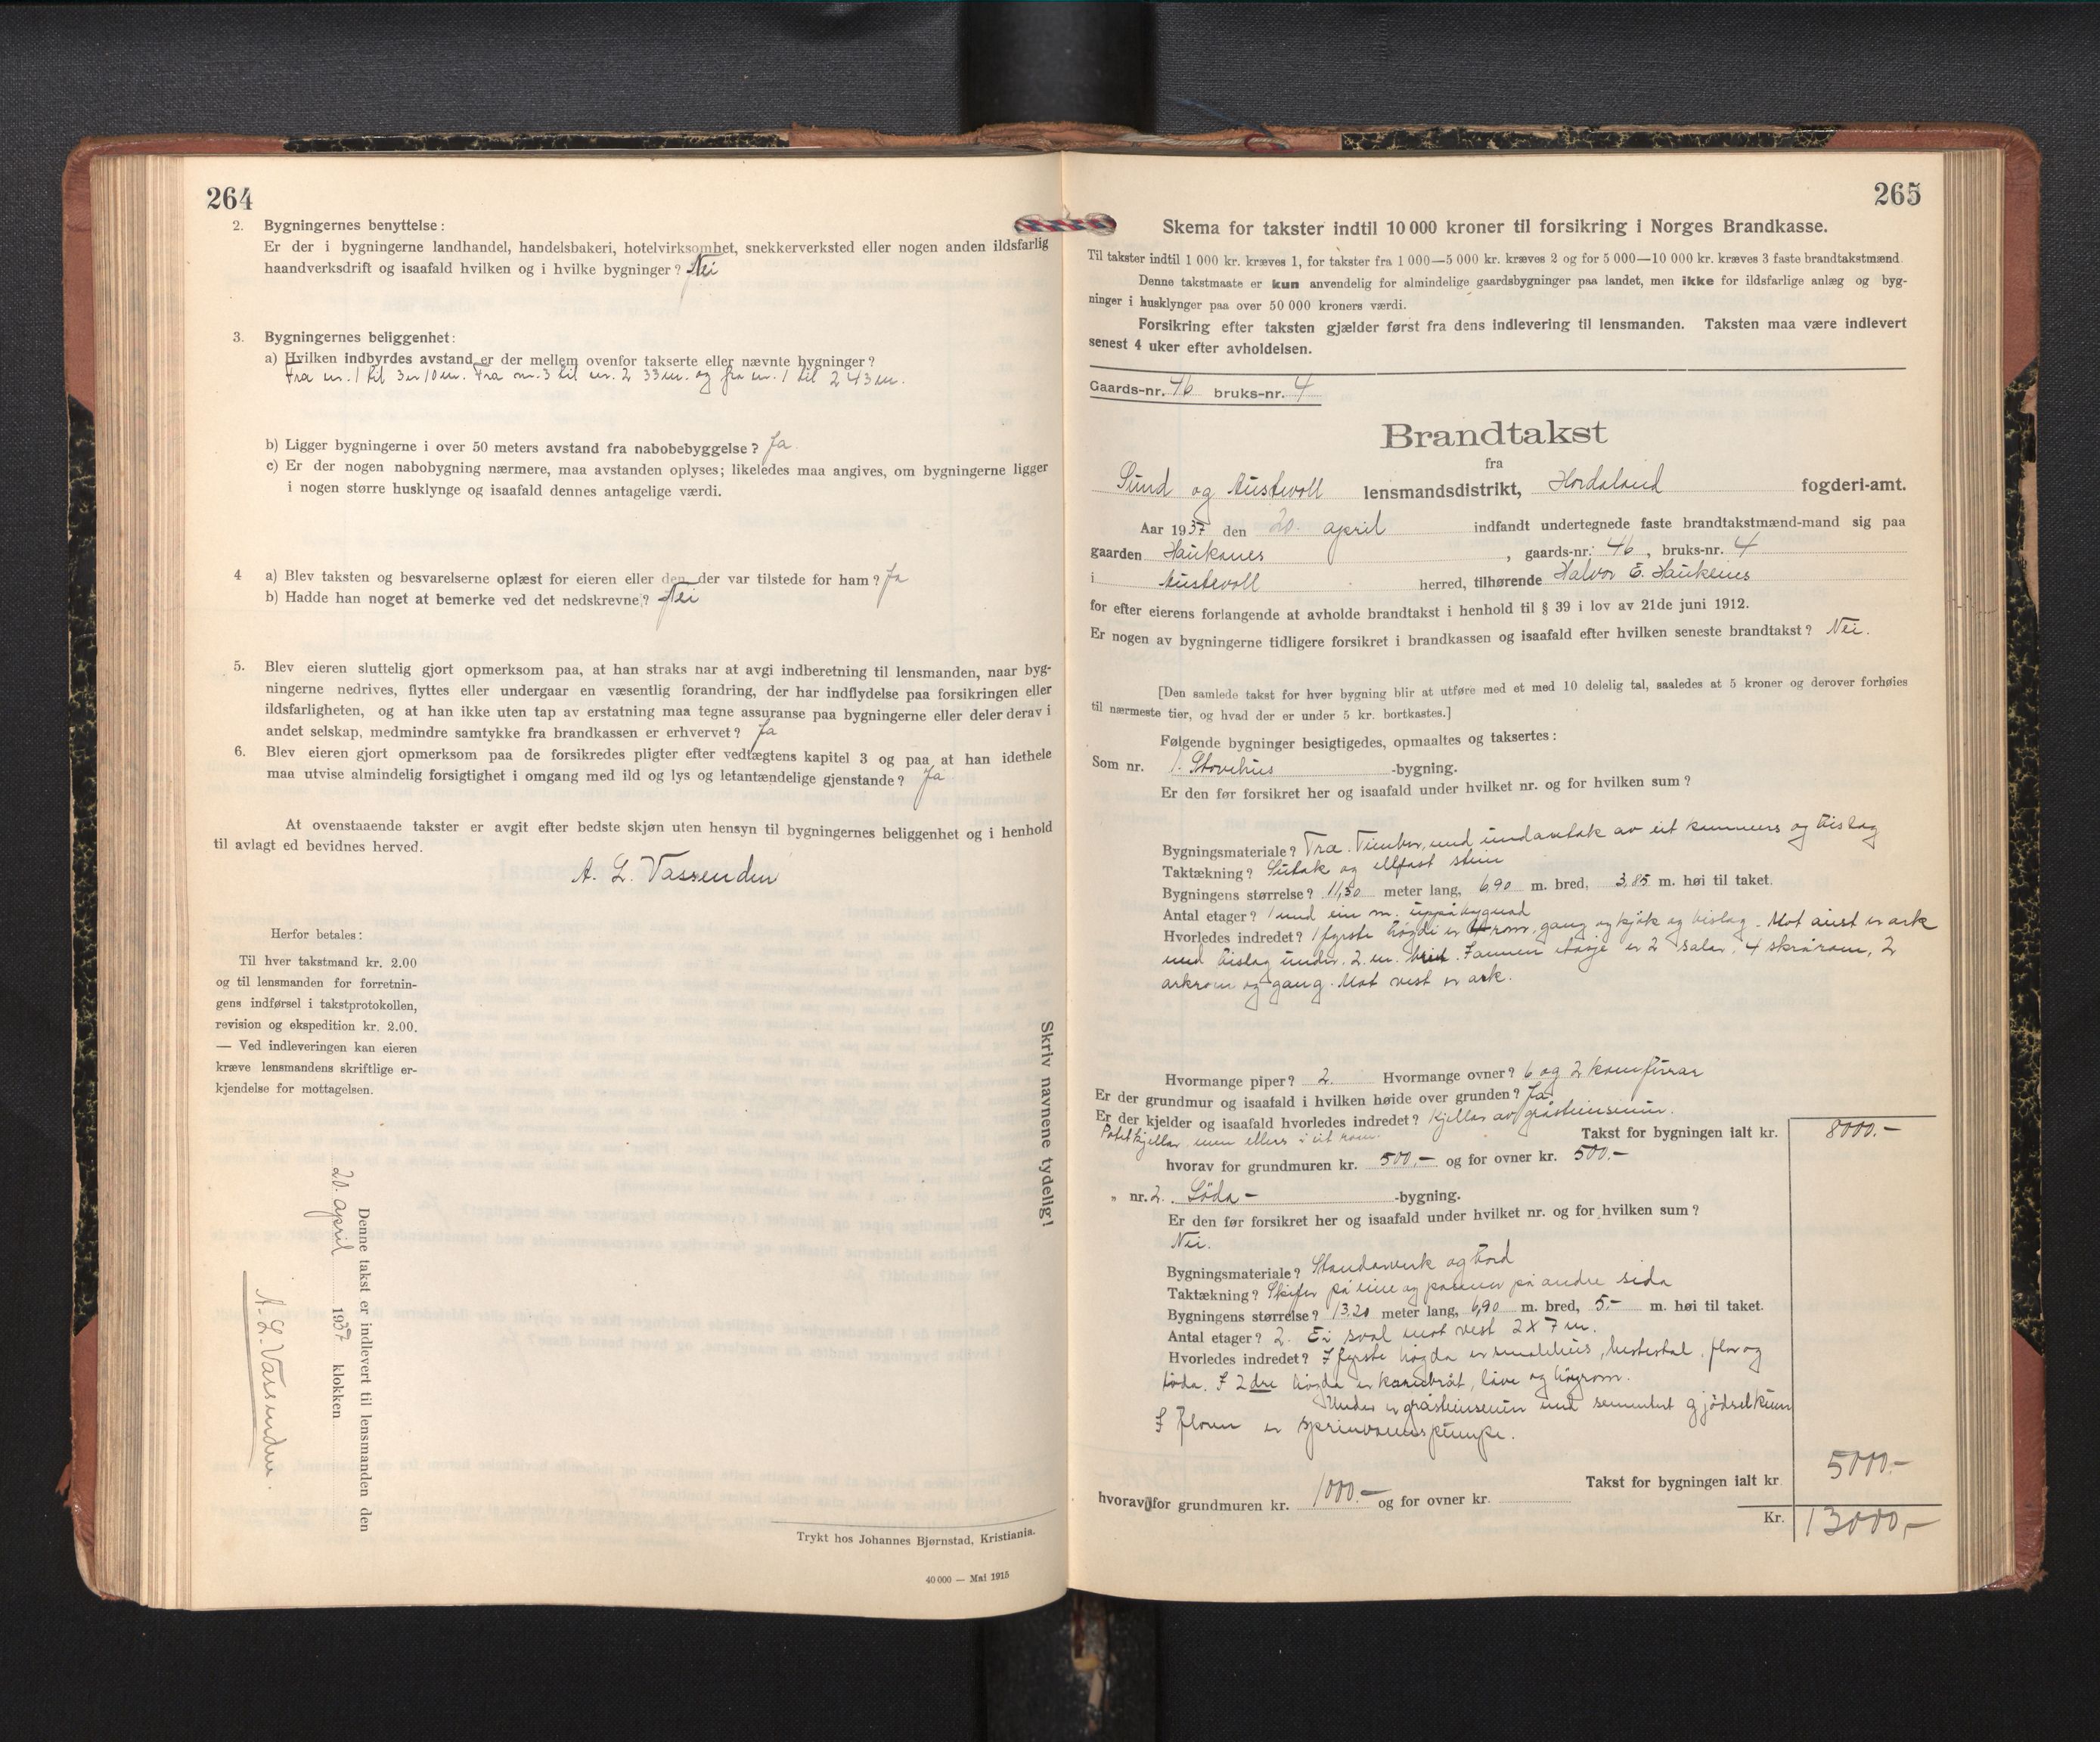 264
2. Bygningernes benyttelse:
Er der i bygningerne landhandel, handelsbakeri, hotelvirksomhet, snekkerverksted eller nogen anden ildsfarlig
haandverksdrift og isaafald hvilken og i hvilke bygninger? Nei
3. Bygningernes beliggenhet:
a) Hvilken indbyrdes avstand er der mellem ovenfor takserte eller nævnte bygninger?
Fra nr. 1 til 3 er 10 m. Fra nr. 3 til nr. 2 33 m. og fra nr. 1 til 2 43 m.
b) Ligger bygningerne i over 50 meters avstand fra nabobebyggelse? Ja
c) Er der nogen nabobygning nærmere, maa avstanden oplyses; likeledes maa angives, om bygningerne ligger
i nogen større husklynge og isaafald dennes antagelige værdi.
4 a) Blev taksten og besvarelserne oplæst for eieren eller den der var tilstede for ham? Ja
b) Hadde han noget at bemerke ved det nedskrevne? Nei
5. Blev eieren sluttelig gjort opmerksom paa, at han straks har at avgi indberetning til lensmanden, naar byg-
ningerne nedrives, flyttes eller undergaar en væsentlig forandring, der har indflydelse paa forsikringen eller
ildsfarligheten, og at han ikke uten tap av erstatning maa tegne assuranse paa bygningerne eller deler derav i
andet selskap, medmindre samtykke fra brandkassen er erhvervet? Ja
6. Blev eieren gjort opmerksom paa de forsikredes pligter efter vedtægtens kapitel 3 og paa, at han idethele
maa utvise almindelig forsigtighet i omgang med ild og lys og letantændelige gjenstande? Ja
At ovenstaaende takster er avgit efter bedste skjøn uten hensyn til bygningernes beliggenhet og i henhold
til avlagt ed bevidnes herved.
A. L. Vassenden
Herfor betales:
Til hver takstmand kr. 2.00
og til lensmanden for forretnin-
gens indførsel i takstprotokollen,
revision og ekspedition kr. 2.00.
— Ved indleveringen kan eieren
kræve lensmandens skriftlige er-
kjendelse for mottagelsen.
Skriv navnene tydelig!
Denne takst er indlevert til lensmanden den
20. april 1937 klokken
A. L. Vassenden.
Trykt hos Johannes Bjørnstad, Kristiania.
40 000 — Mai 1915
265
Skema for takster indtil 10 000 kroner til forsikring i Norges Brandkasse.
Til takster indtil 1 000 kr. kræves 1, for takster fra 1 000—5 000 kr. kræves 2 og for 5 000—10 000 kr. kræves 3 faste brandtakstmænd
Denne takstmaate er kun anvendelig for almindelige gaardsbygninger paa landet, men ikke for ildsfarlige anlæg og byg-
ninger i husklynger paa over 50 000 kroners værdi.
Forsikring efter taksten gjælder først fra dens indlevering til lensmanden. Taksten maa være indlevert
senest 4 uker efter avholdelsen.
Gaards-nr. 46 bruks-nr. 4
Brandtakst
fra
Sund og Austevoll lensmandsdistrikt, Hordaland fogderi-amt.
Aar 1937 den 20. april indfandt undertegnede faste brandtakstmænd-mand sig paa
gaarden Haukanes, gaards-nr. 46, bruks-nr. 4
i Austevoll herred, tilhørende Halvor E. Haukenes
for efter eierens forlangende at avholde brandtakst i henhold til § 39 i lov av 21de juni 1912.
Er nogen av bygningerne tidligere forsikret i brandkassen og isaafald efter hvilken seneste brandtakst? Nei.
[Den samlede takst for hver bygning blir at utføre med et med 10 delelig tal, saaledes at 5 kroner og derover forhøies
til nærmeste tier, og hvad der er under 5 kr. bortkastes.]
Følgende bygninger besigtigedes, opmaaltes og taksertes:
Som nr. 1. Stovehus -bygning.
Er den før forsikret her og isaafald under hvilket nr. og for hvilken sum?
Bygningsmateriale? Tre. Timber, med undantak av eit kammers og bislag
Taktækning? Sutak og ellfast stein
Bygningens størrelse? 11,50 meter lang, 6,90 m. bred, 3,85 m. høi til taket.
Antal etager? 1 med ein m. uppåbygnad
Hvorledes indredet? I fyrste høgdi er 4 rom, gang og kjøk og bislag. Mot aust er ark
med bislag under. 2 m. breid. I annen etasje er 2 salar, 4 skråroom, 2
arkrom og gang. Mot vest er ark.
Hvormange piper? 2. Hvormange ovner? 6 og 2 komfurar
Er der grundmur og isaafald i hvilken høide over grunden? Ja
Er der kjelder og isaafald hvorledes indredet? Kjellar av gråsteinsmur.
Potetkjellar, men ellers i eit rom. Takst for bygningen ialt kr. 8000.-
hvorav for grundmuren kr. 500,- og for ovner kr. 500.-
„ nr. 2. Løda- -bygning.
Er den før forsikret her og isaafald under hvilket nr. og for hvilken sum?
Nei.
Bygningsmateriale? Standarverk og bord
Taktækning? Skifer på eine og panner på andre sida
Bygningens størrelse? 13,20 meter lang, 6,90 m. bred, 5.- m. høi til taket.
Antal etager? 2. Ei sval mot vest 2 x 7 m.
Hvorledes indredet? I fyrste høgda er smalehus, hestestal, flor og
løda. I 2dre høgda er køyrebråt, låve og høyrom.
Under er gråsteinsmur med sementert gjødselkum
I floren er springvasspumpe.
Takst for bygningen ialt kr. 5000.-
hvorav for grundmuren kr. 1000.- og for ovner kr.
Kr. 13000,-